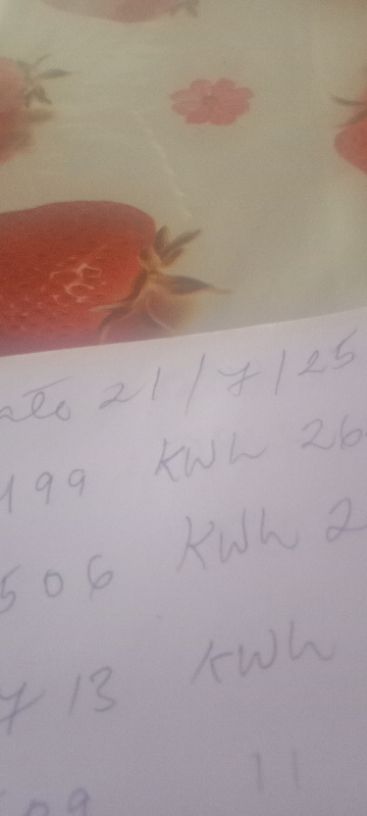 ato 21/7/25
199 KWh 26
506 KWh 2
713 KWh
09 11